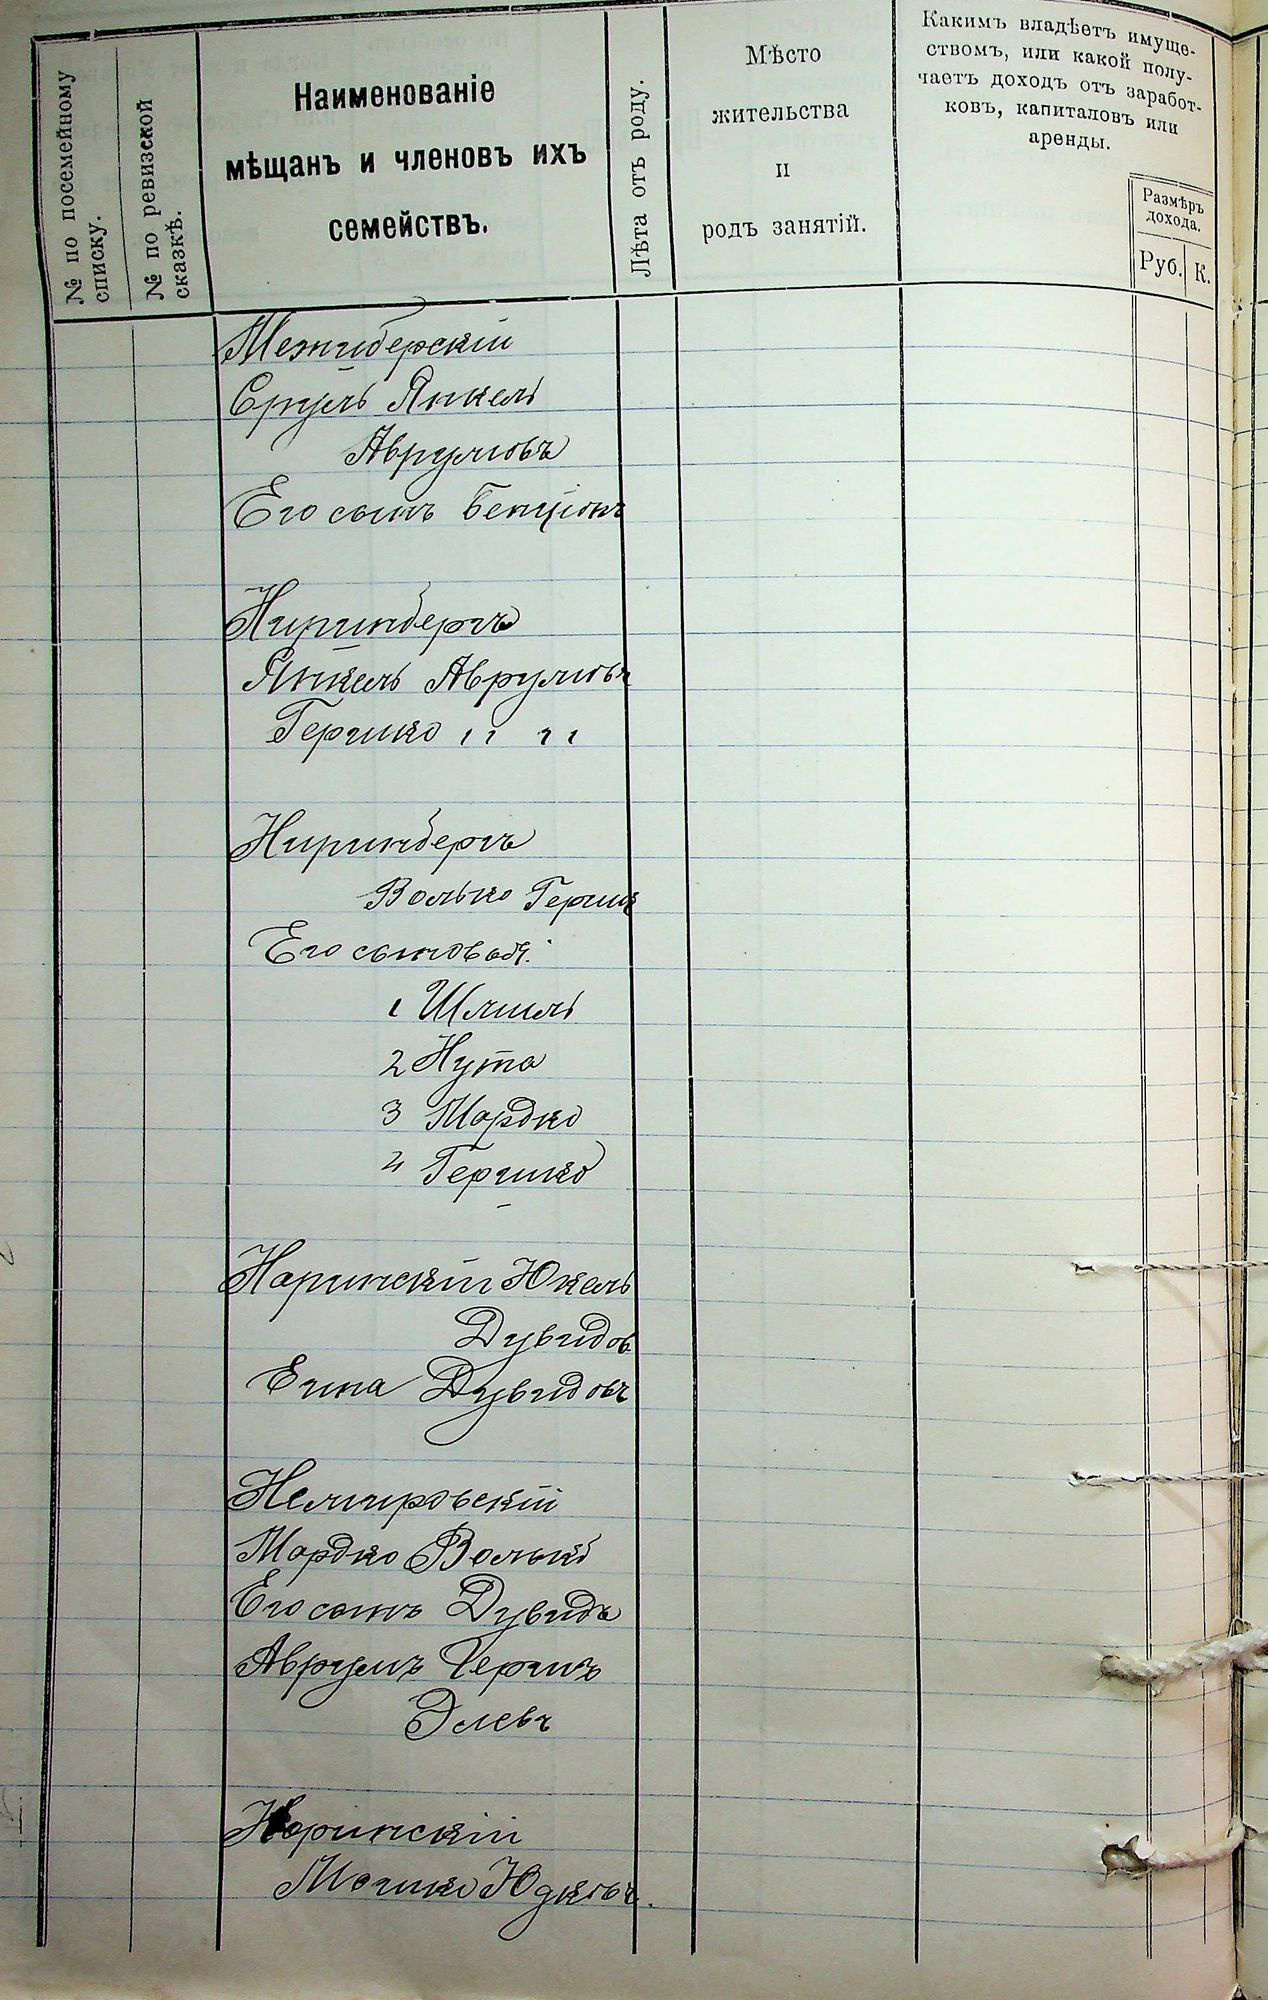 № по посемейному
списку.
№ по ревизской
сказкѣ.
Наименованіе
мѣщанъ и членовъ ихъ
семействъ.
Лѣта отъ роду.
Мѣсто
жительства
и
родъ занятій.
Какимъ владѣетъ имуще-
ствомъ, или какой полу-
чаетъ доходъ отъ заработ-
ковъ, капиталовъ или
аренды.
Размѣръ
дохода.
Руб. К.
Межиберскій
Сруль Янкель
Аврумовъ
Его сынъ Бенціонъ
Ниринбергъ
Янкель Аврумовъ
Гершко " "
Ниринбергъ
Волько Герш
Его сыновья:
1 Шмиль
2 Нута
3 Мордко
4 Гершко
Наринскій Юкель
Дувидов
Дувидовъ
Немировскій
Мордко Волько
Его сынъ Дувидъ
Аврумъ Гершъ
Элевъ
Наринскій
Мошко Юдковъ.